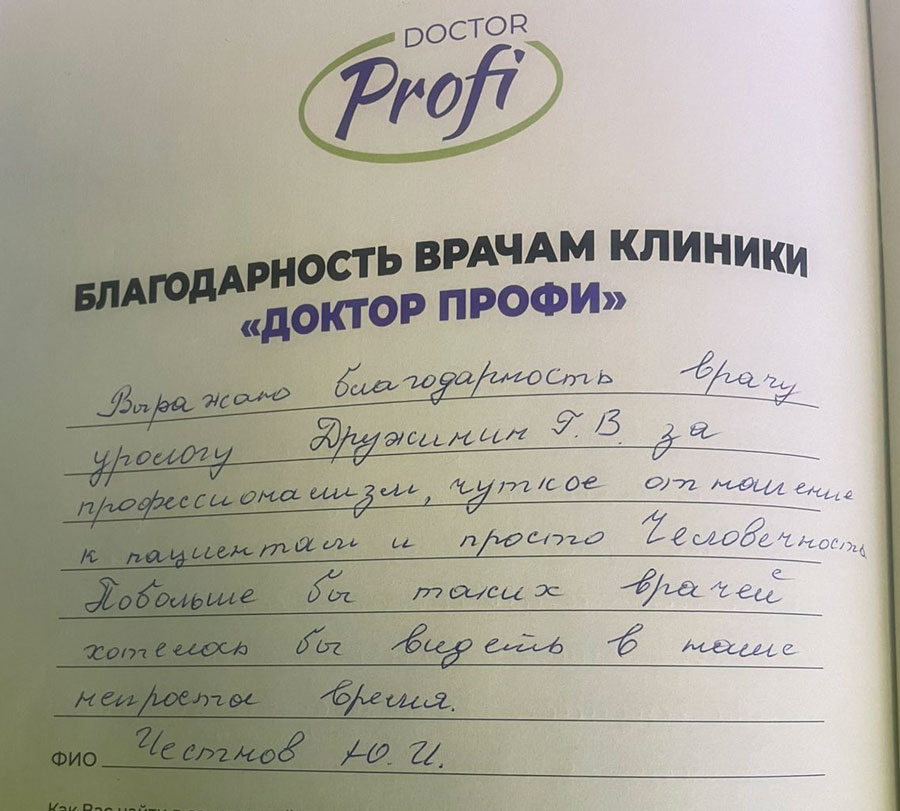 DOCTOR
Profi
БЛАГОДАРНОСТЬ ВРАЧАМ КЛИНИКИ
«ДОКТОР ПРОФИ»
Выражаю благодарность врачу
урологу Дружинин Г. В. за
профессионализм, чуткое отношение
к пациентам и просто Человечность
Побольше бы таких врачей
хотелось бы видеть в наше
непросто время.
ФИО Честнов Ю. И.
Как Вас найти в